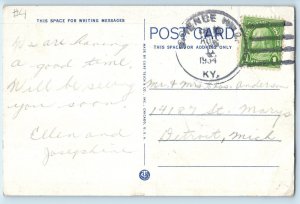 #4
THIS SPACE FOR WRITING MESSAGES
POST CARD
THIS SPACE FOR ADDRESS ONLY
We are having
a good time.
Will be seeing
you soon.
Ellen and
Josephine
MADE BY CURT TEICH & CO., INC., CHICAGO, U.S.A.
AUG
1934
KY.
Mr & Mrs Chas. Anderson
14187 St. Marys
Detroit, Mich